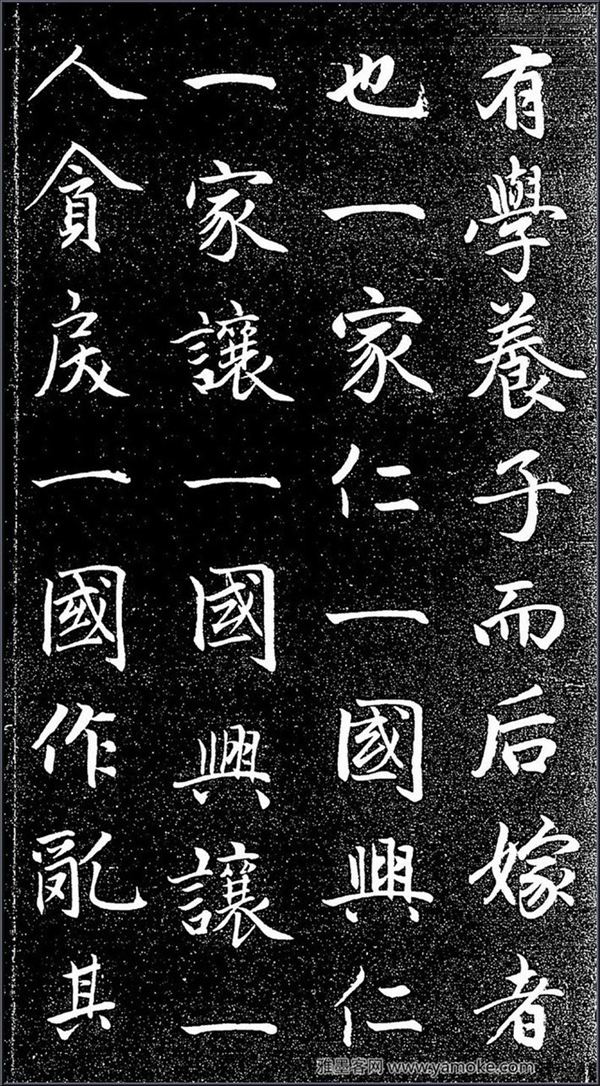 有學養子而后嫁者
也一家仁一國興仁
一家讓一國興讓一
人貪戾一國作亂其
雅墨客网 www.yamoke.com